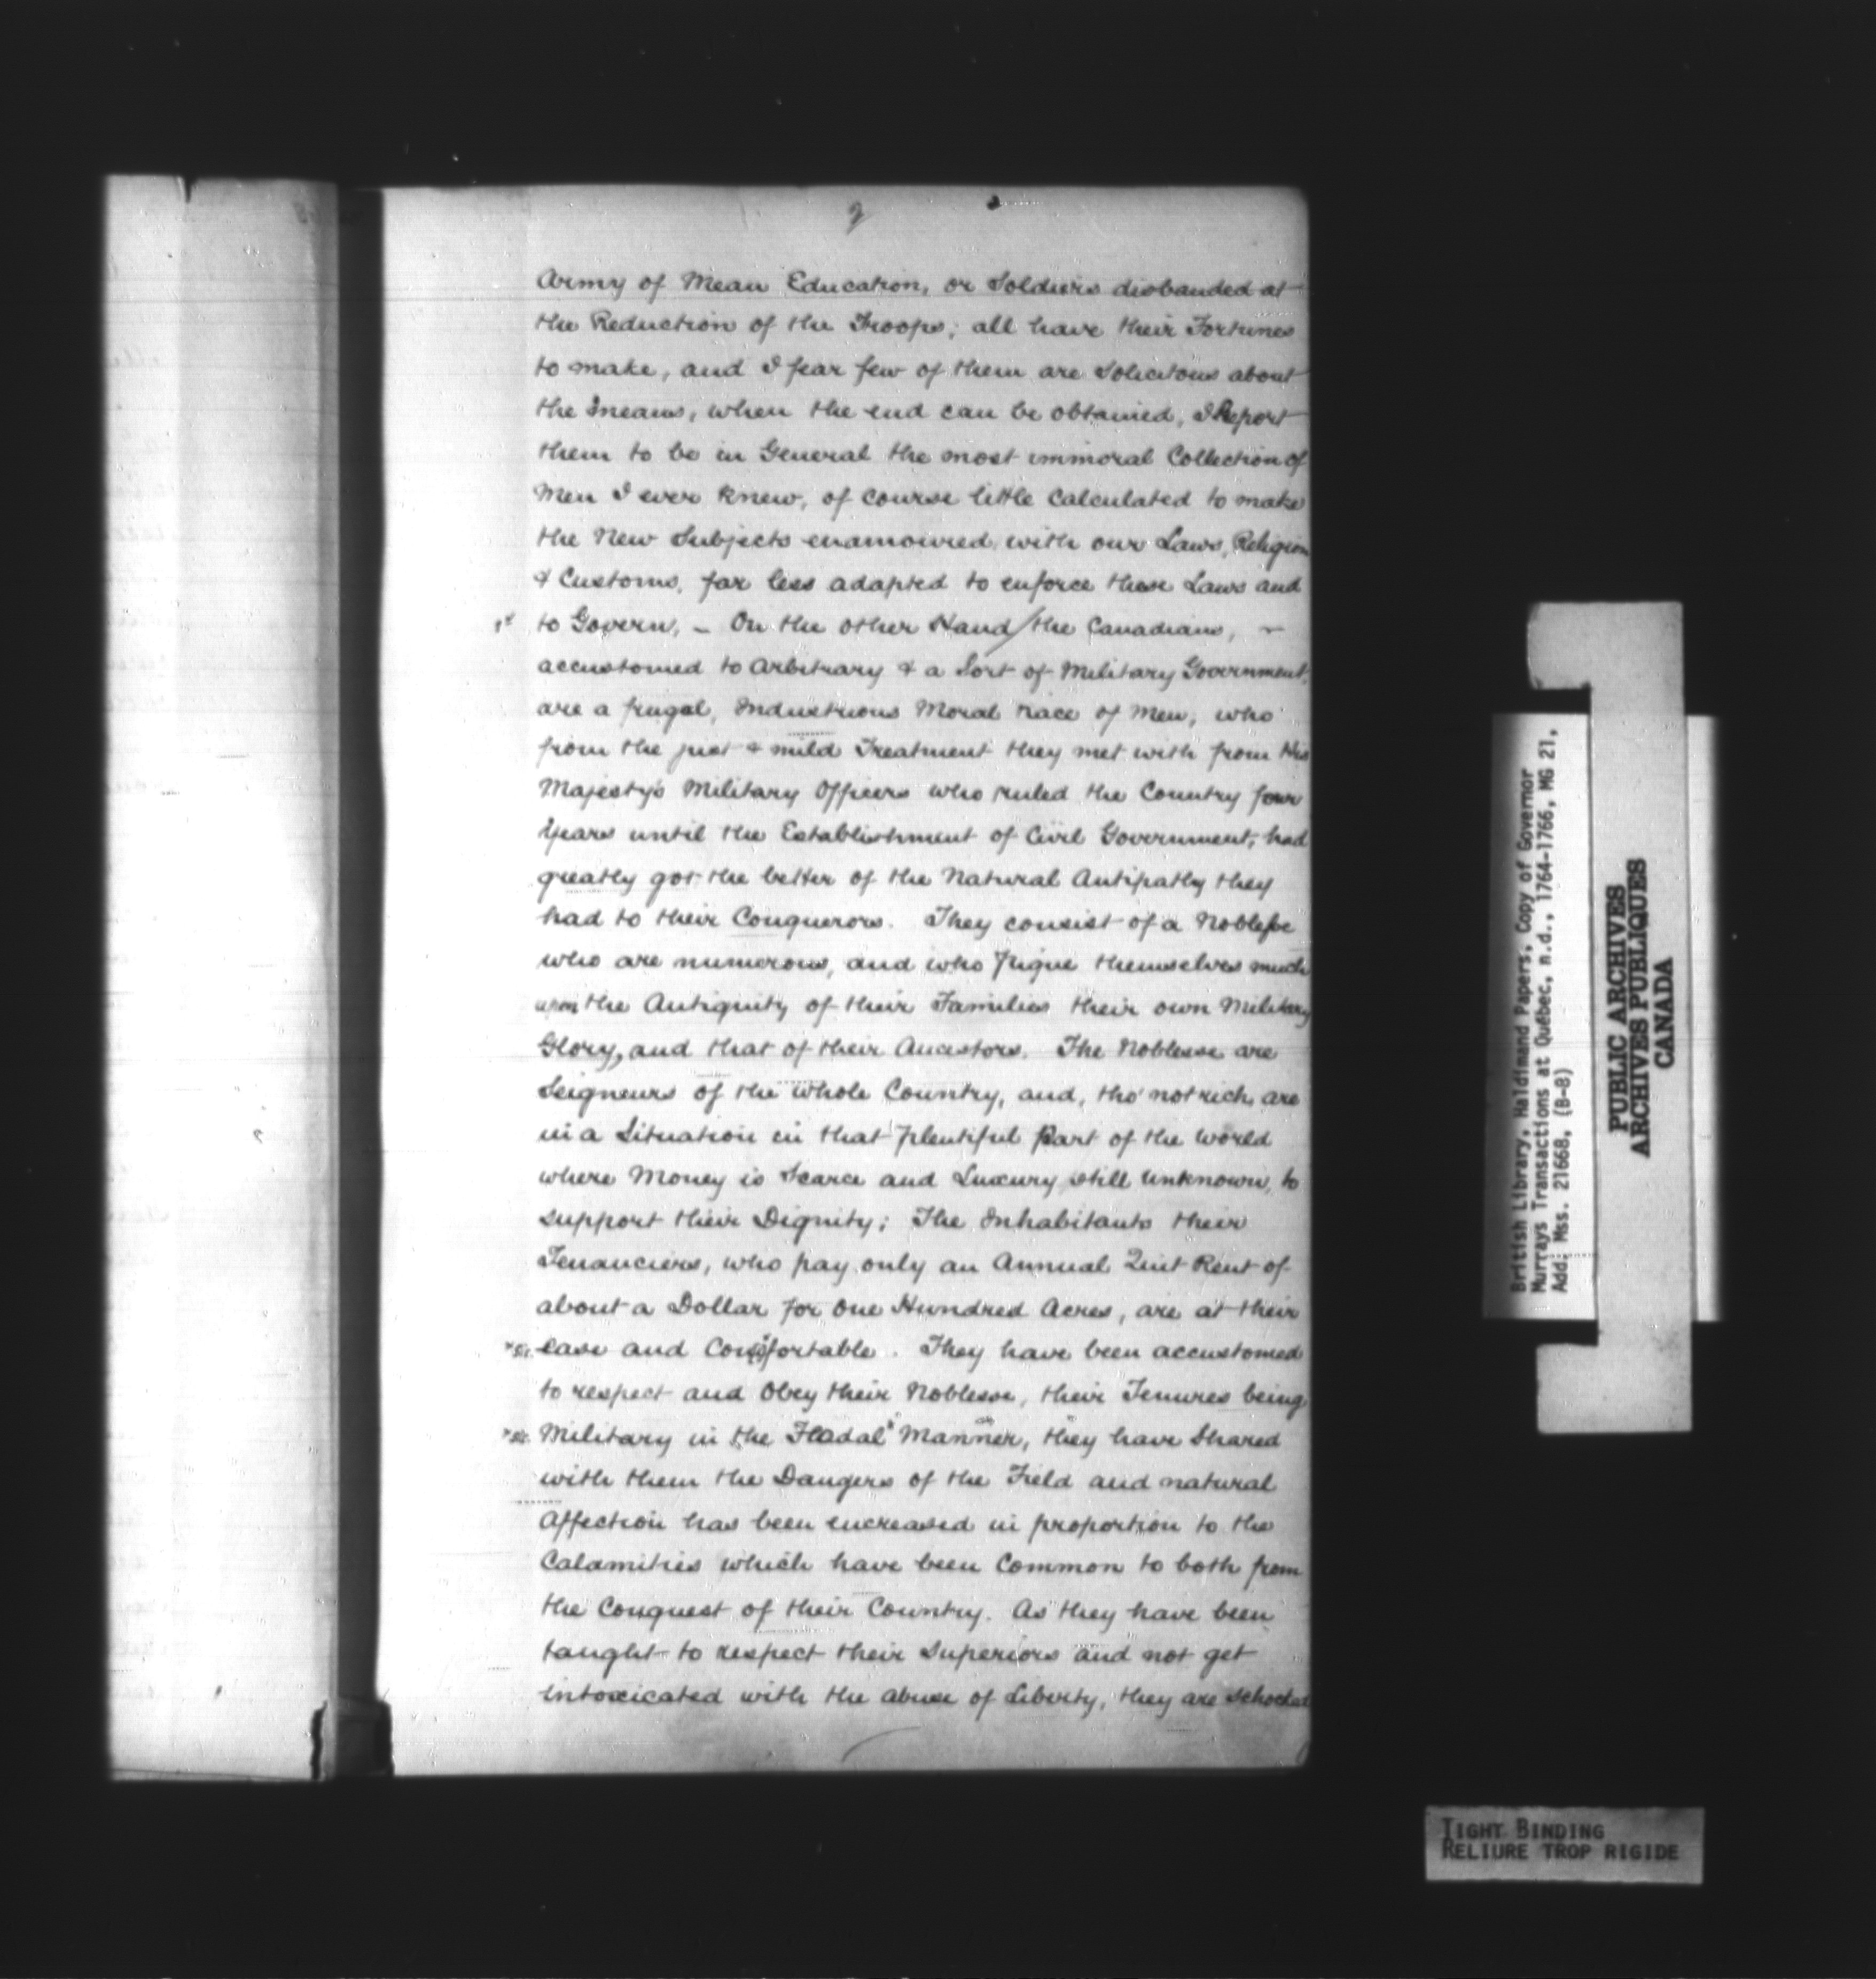 2
Army of Mean Education, or Soldiers disbanded at
the Reduction of the Troops; all have their Fortunes
to make, and I fear few of them are Solicitous about
the means, when the end can be obtained, I Report
them to be in General the most immoral Collection of
Men I ever knew, of course little Calculated to make
the New Subjects enamoured with our Laws, Religion
& Customs, far less adapted to enforce these Laws and
to Govern, – On the other Hand / the Canadians, –
accustomed to Arbitrary & a Sort of Military Government,
are a frugal, Industrious Moral race of Men, who
from the just & mild Treatment they met with from His
Majesty's Military Officers who ruled the Country four
Years until the Establishment of Civil Government, had
greatly got the better of the Natural Antipathy they
had to their Conquerors. They consist of a Noblesse
who are numerous, and who pique themselves much
upon the Antiquity of their Families their own Military
Glory, and that of their Ancestors. The Noblesse are
Seigneurs of the whole Country, and, tho' not rich, are
in a Situation in that plentiful Part of the World
where Money is Scarce and Luxury still unknown, to
support their Dignity; The Inhabitants their
Tenanciers, who pay only an Annual Quit Rent of
about a Dollar for One Hundred Acres, are at their
ease and Comfortable. They have been accustomed
to respect and Obey their Noblesse, their Tenures being
Military in the Fladal Manner, they have Shared
with them the Dangers of the Field and natural
Affection has been encreased in proportion to the
Calamities which have been Common to both from
the Conquest of their Country. As they have been
taught to respect their Superiors and not get
intoxicated with the abuse of Liberty, they are schocked
British Library, Haldimand Papers, Copy of Governor
Murrays Transactions at Québec, n.d., 1764-1766, MG 21,
Add: Mss. 21668, (B-8)
PUBLIC ARCHIVES
ARCHIVES PUBLIQUES
CANADA
TIGHT BINDING
RELIURE TROP RIGIDE